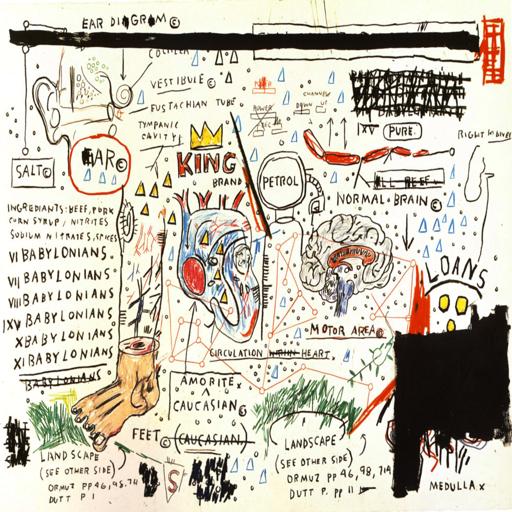 EAR DIAGRAM©
COCHLEA
VESTIBULE©
EUSTACHIAN TUBE
TYMPANIC
CAVITY
SALT©
EAR©
KING
BRAND
PETROL
IXV PURE.
ALL BEEF
NORMAL BRAIN©
INGREDIANTS: BEEF, PORK
CORN SYRUP / NITRITES
SODIUM NITRATES, SPICES
VI BABYLONIANS.
VII BABYLONIANS
VIII BABYLONIANS
IXV BABYLONIANS
X BABYLONIANS
XI BABYLONIANS
BABYLONIANS
LOANS
MOTOR AREA©
CIRCULATION WITHIN HEART.
AMORITE x
CAUCASIAN©
FEET© (CAUCASIAN)
LANDSCAPE
(SEE OTHER SIDE)
ORMUZ PP 46, 98, 714
DUTT P 1
S
LANDSCAPE
(SEE OTHER SIDE)
ORMUZ PP 46, 98, 714
DUTT P. PP 11
MEDULLA x